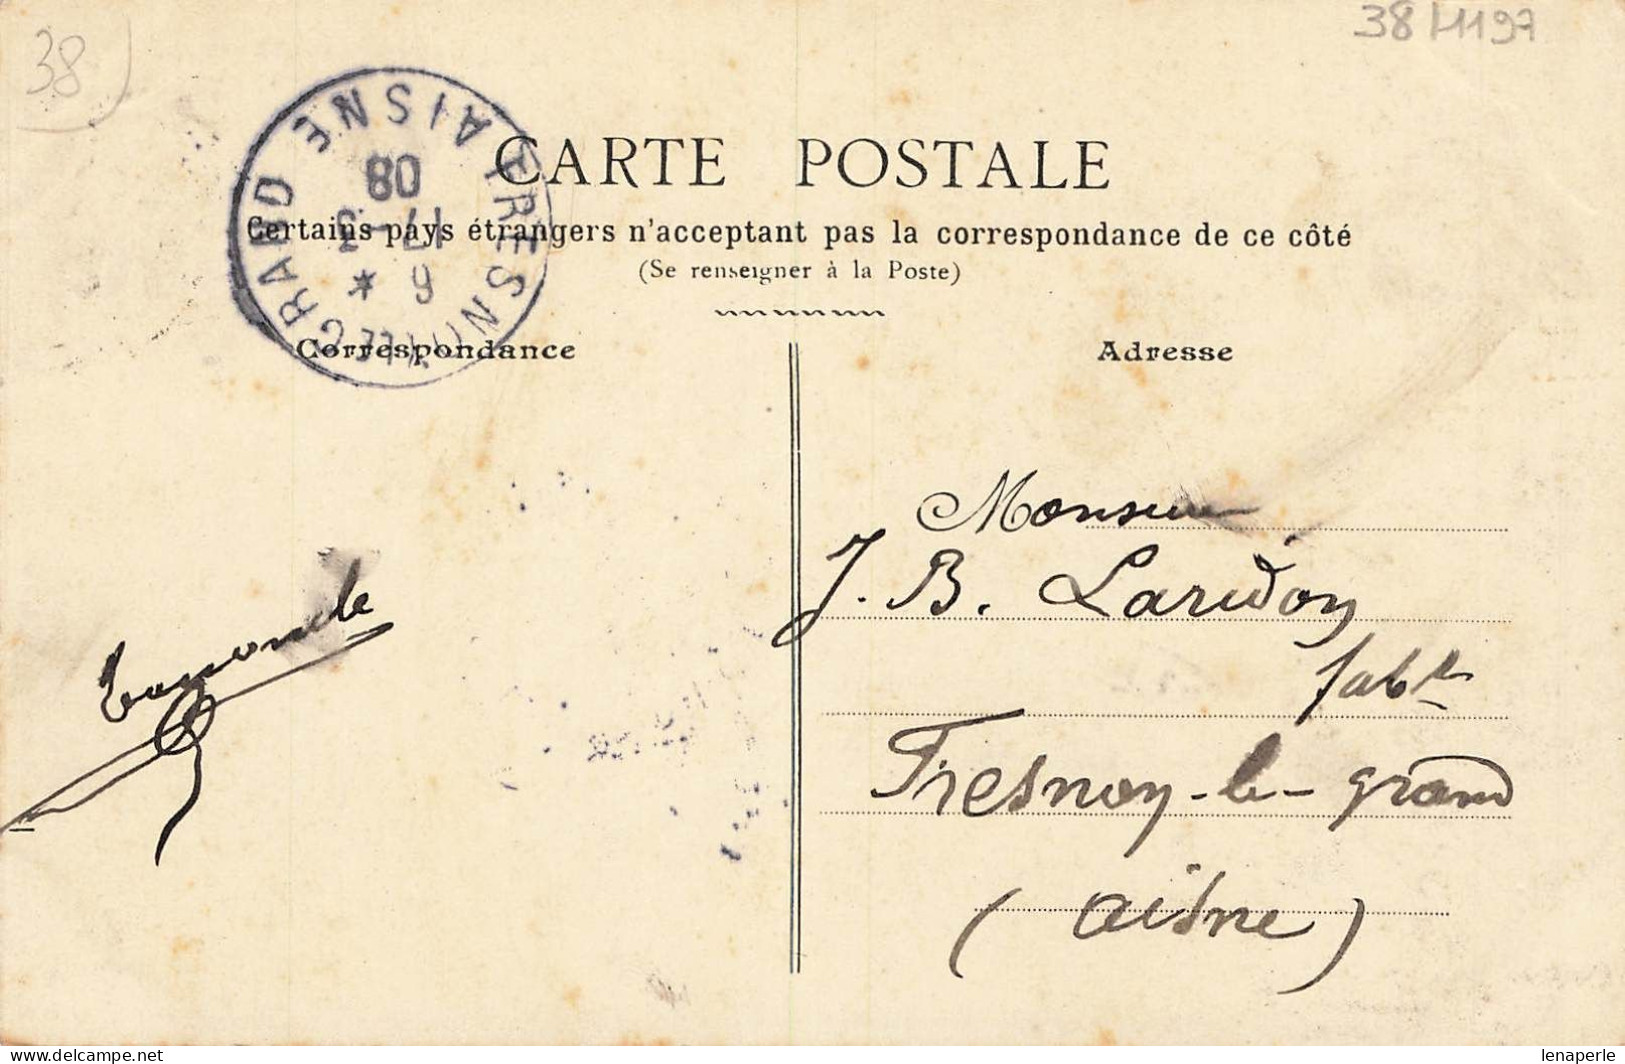 38
38/1197
FRESNOY-LE-GRAND AISNE
* 9
17-3
08
CARTE POSTALE
Certains pays étrangers n'acceptant pas la correspondance de ce côté
(Se renseigner à la Poste)
Correspondance
Adresse
Monsieur
J. B. Laridon
fabt
Fresnoy-le-grand
(aisne)
lenaperle